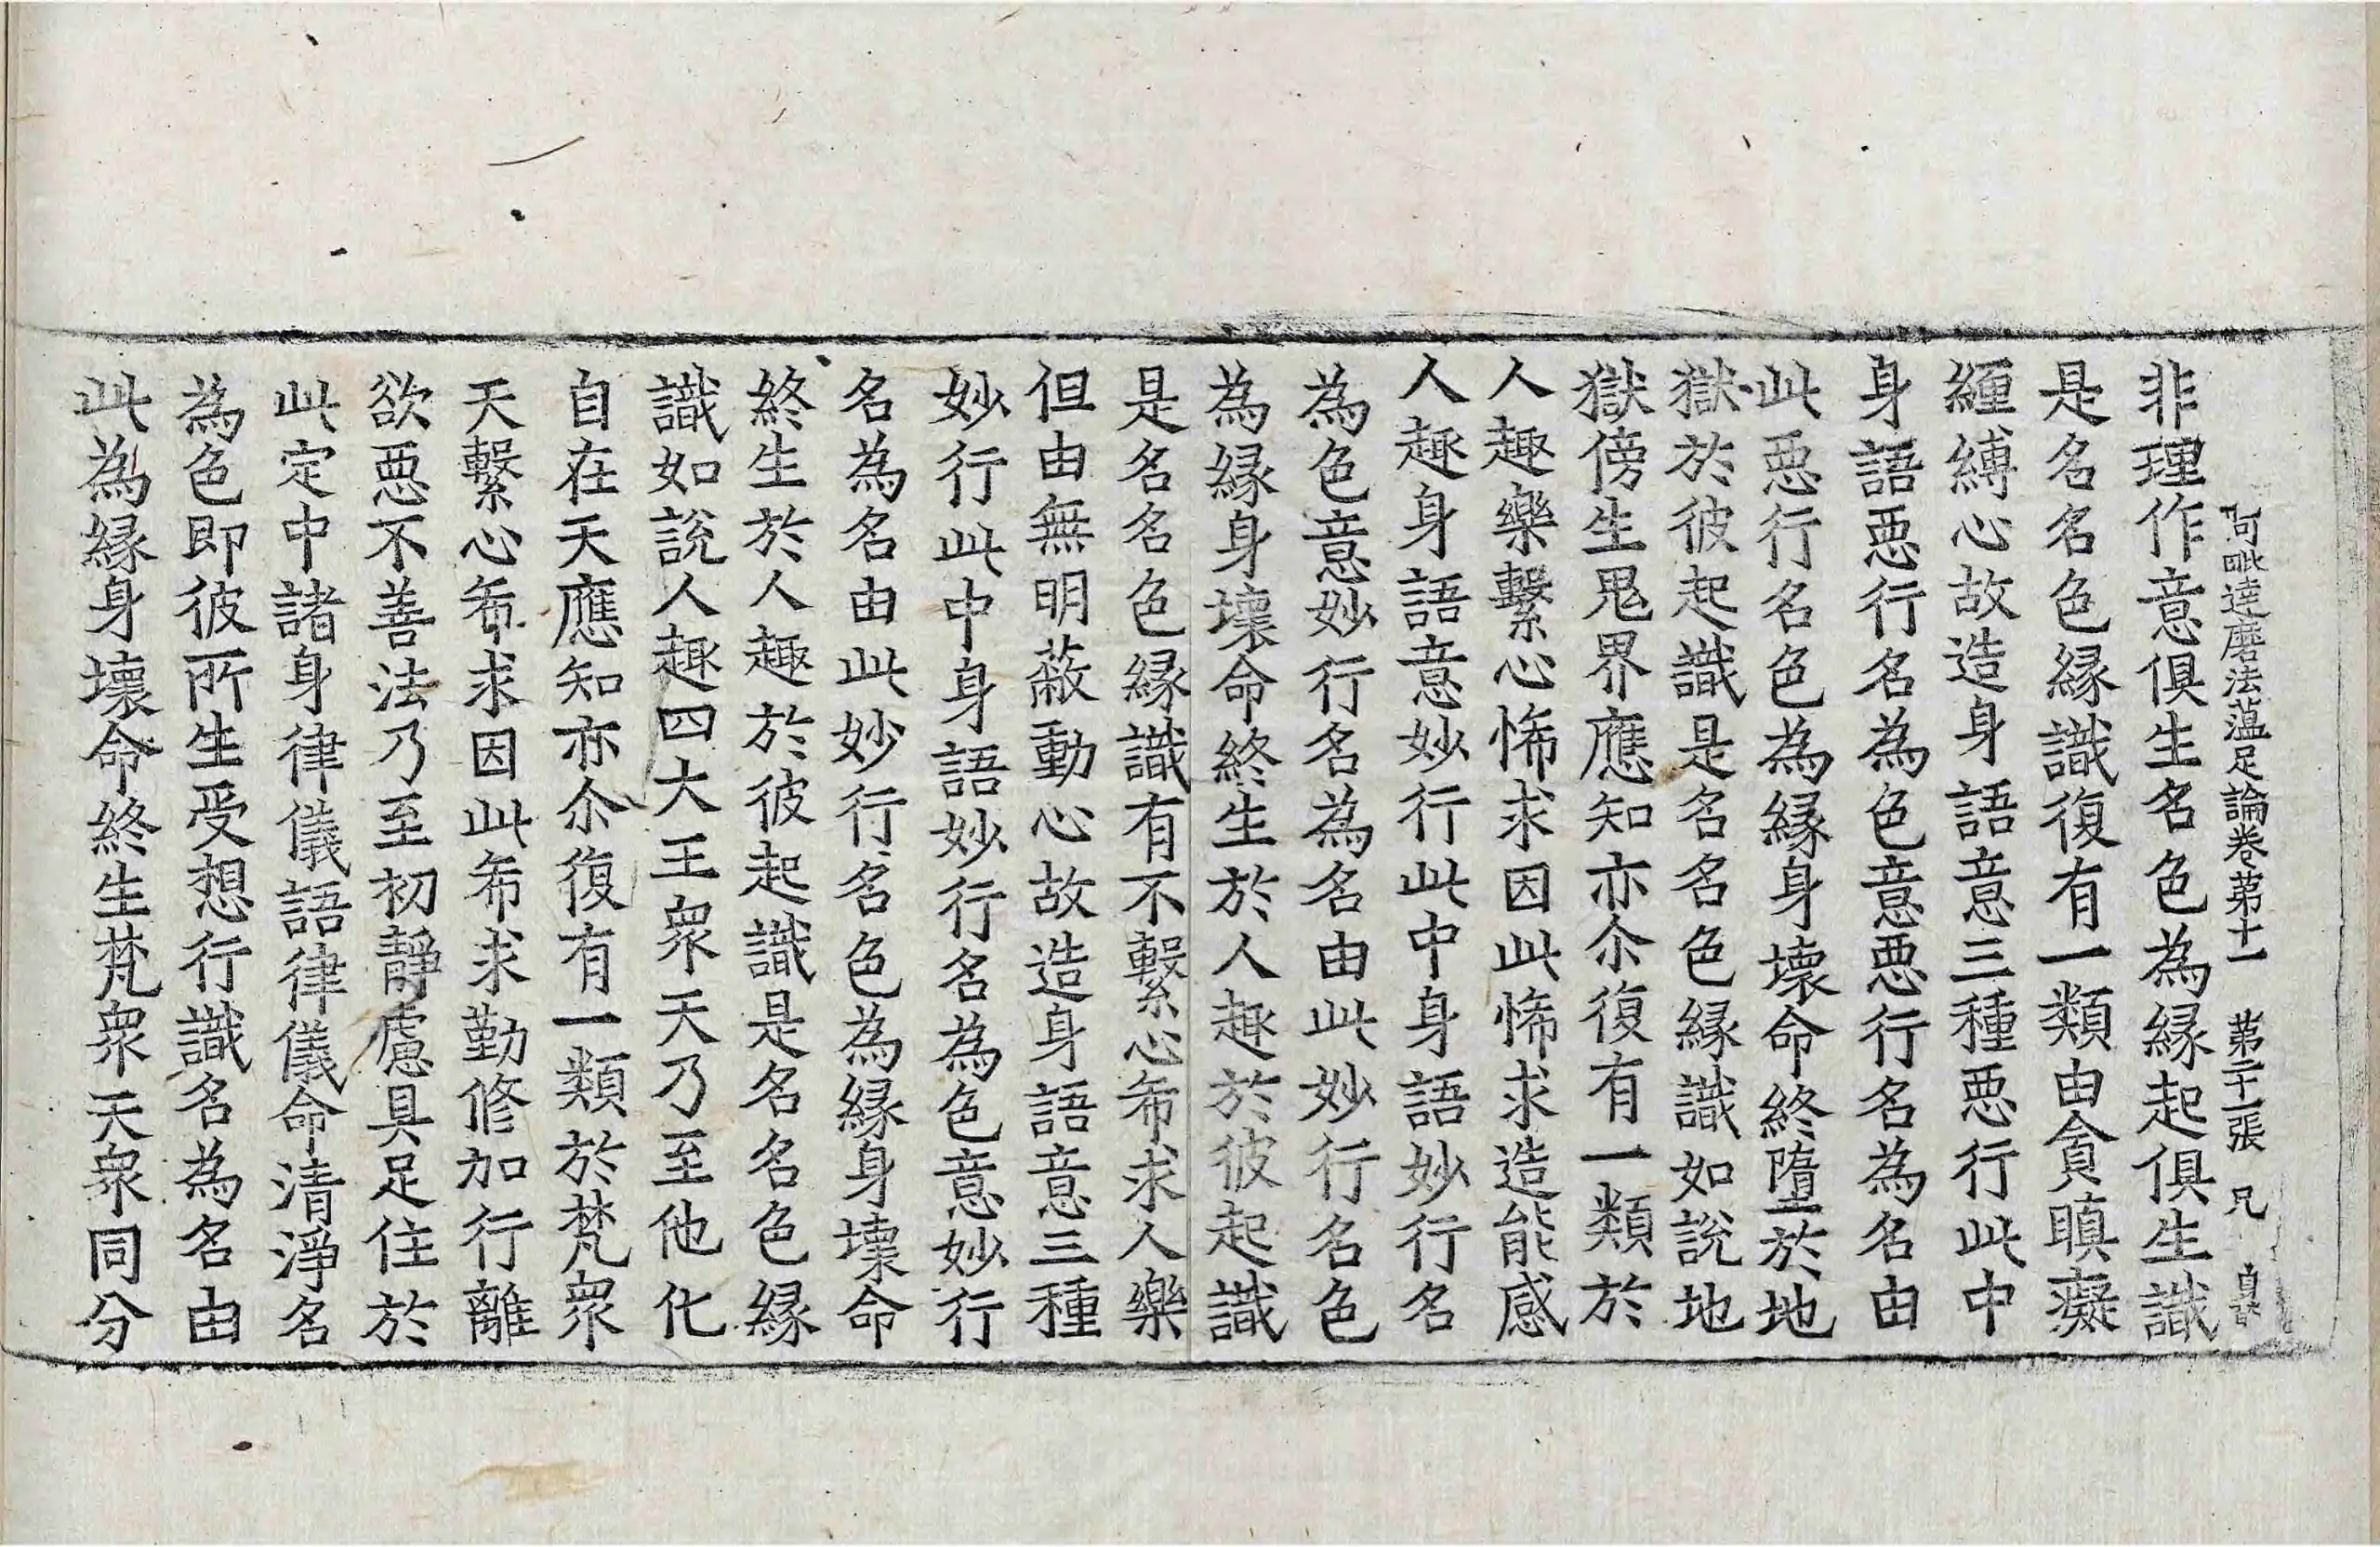 阿毗達磨法蘊足論卷苐十一 苐二十二張 兄
非理作意俱生名色為緣起俱生識
是名名色緣識復有一類由貪瞋癡
纏縛心故造身語意三種惡行此中
身語惡行名為色意惡行名為名由
此惡行名色為緣身壞命終墮於地
獄於彼起識是名名色緣識如說地
獄傍生鬼界應知亦尒復有一類於
人趣樂繫心悕求因此悕求造能感
人趣身語意妙行此中身語妙行名
為色意妙行名為名由此妙行名色
為緣身壞命終生於人趣於彼起識
是名名色緣識有不繫心希求人樂
但由無明蔽動心故造身語意三種
妙行此中身語妙行名為色意妙行
名為名由此妙行名色為緣身壞命
終生於人趣於彼起識是名名色緣
識如說人趣四大王眾天乃至他化
自在天應知亦尒復有一類於梵眾
天繫心希求因此希求勤修加行離
欲惡不善法乃至初靜慮具足住於
此定中諸身律儀語律儀命清淨名
為色即彼所生受想行識名為名由
此為緣身壞命終生梵眾天眾同分